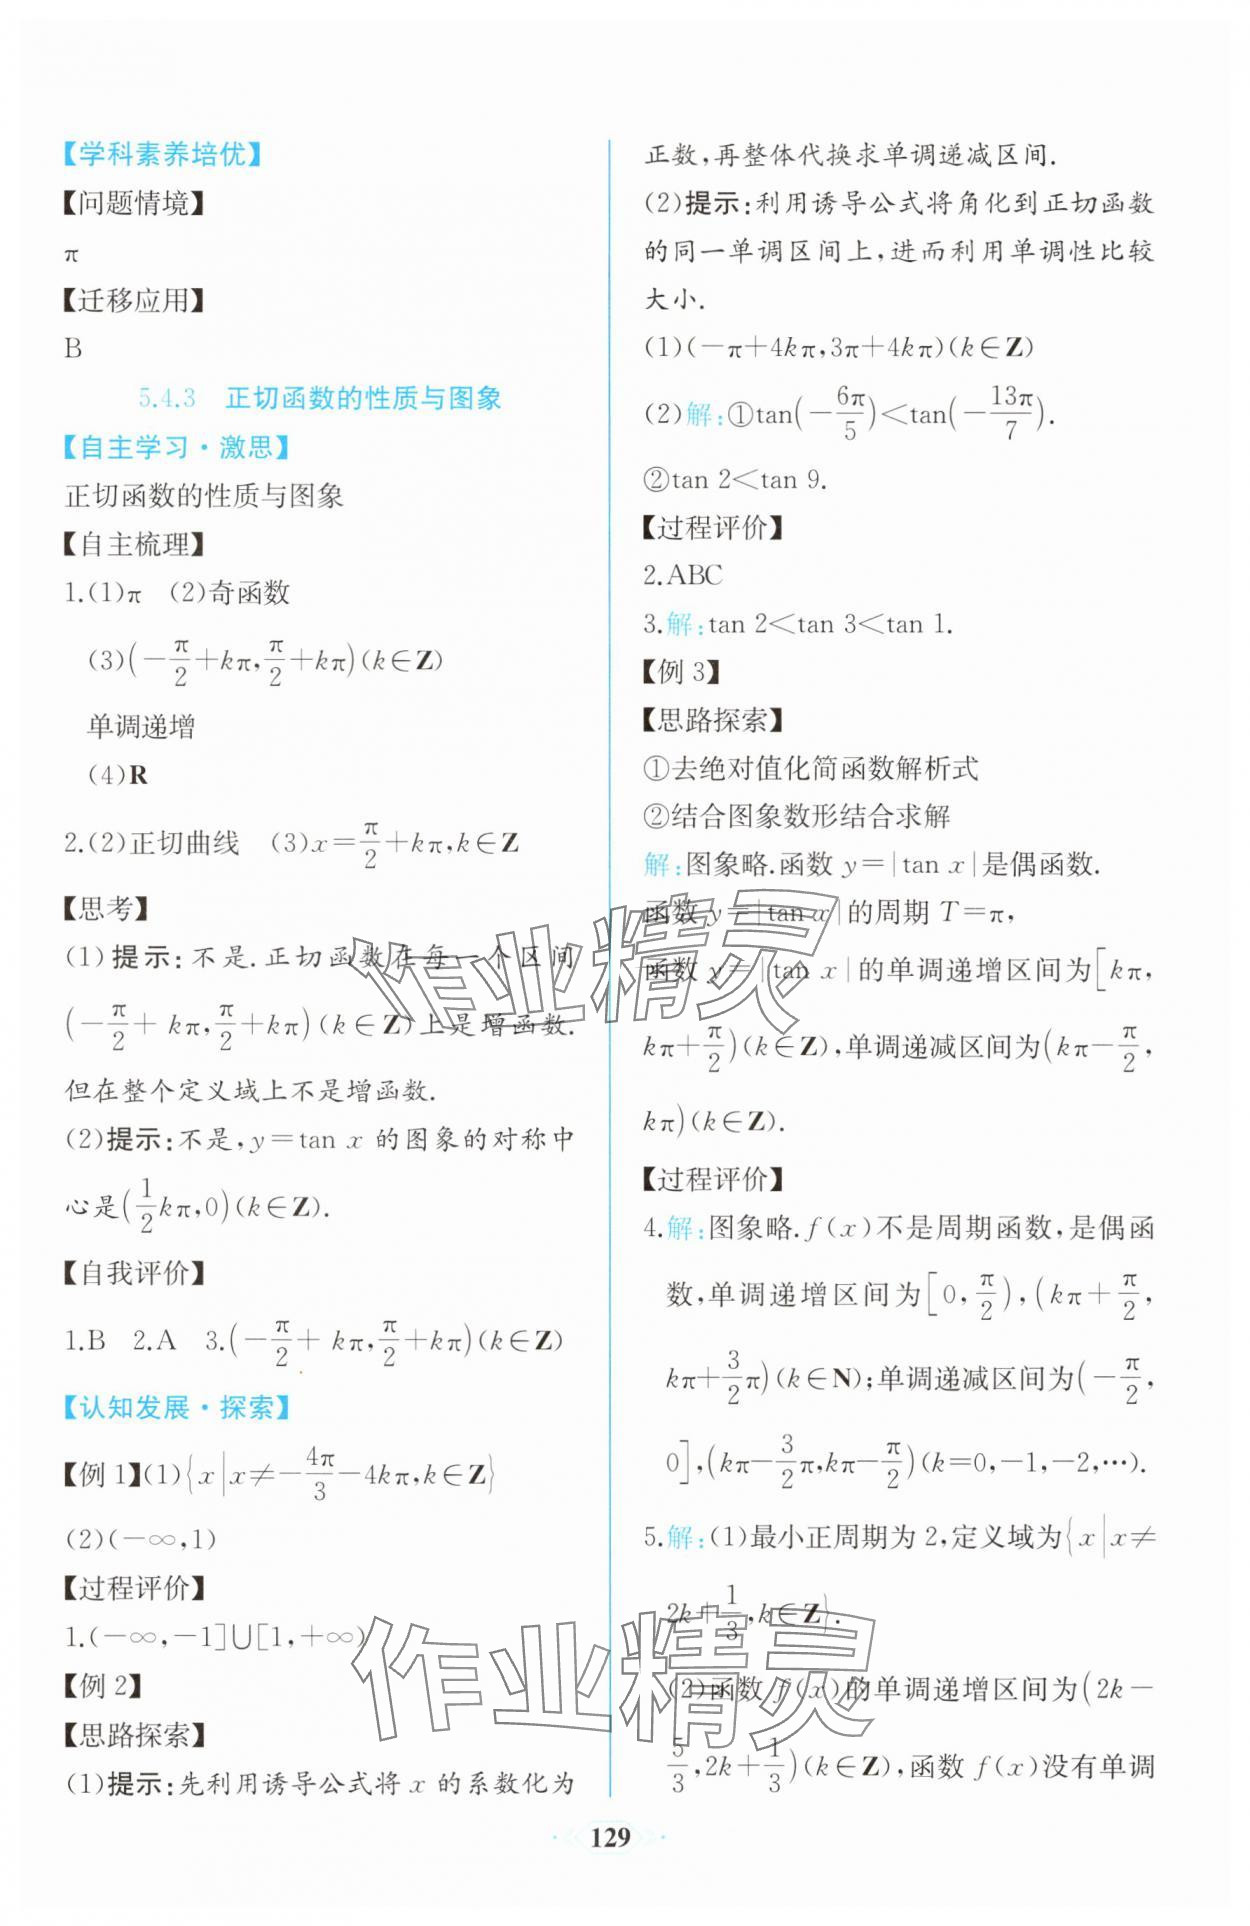 【学科素养培优】
【问题情境】
π
【迁移应用】
B
5.4.3　正切函数的性质与图象
【自主学习·激思】
正切函数的性质与图象
【自主梳理】
1.(1)π　(2)奇函数
(3)(-π/2+kπ,π/2+kπ)(k∈Z)
单调递增
(4)R
2.(2)正切曲线　(3)x=π/2+kπ,k∈Z
【思考】
(1)提示:不是.正切函数在每一个区间
(-π/2+kπ,π/2+kπ)(k∈Z)上是增函数.
但在整个定义域上不是增函数.
(2)提示:不是,y=tan x 的图象的对称中
心是(1/2kπ,0)(k∈Z).
【自我评价】
1.B　2.A　3.(-π/2+kπ,π/2+kπ)(k∈Z)
【认知发展·探索】
【例1】(1){x|x≠-4π/3-4kπ,k∈Z}
(2)(-∞,1)
【过程评价】
1.(-∞,-1]∪[1,+∞)
【例2】
【思路探索】
(1)提示:先利用诱导公式将 x 的系数化为
正数,再整体代换求单调递减区间.
(2)提示:利用诱导公式将角化到正切函数
的同一单调区间上,进而利用单调性比较
大小.
(1)(-π+4kπ,3π+4kπ)(k∈Z)
(2)解:①tan(-6π/5)<tan(-13π/7).
②tan 2<tan 9.
【过程评价】
2.ABC
3.解:tan 2<tan 3<tan 1.
【例3】
【思路探索】
①去绝对值化简函数解析式
②结合图象数形结合求解
解:图象略.函数 y=|tan x|是偶函数.
函数 y=|tan x|的周期 T=π,
函数 y=|tan x|的单调递增区间为[kπ,
kπ+π/2)(k∈Z),单调递减区间为(kπ-π/2,
kπ)(k∈Z).
【过程评价】
4.解:图象略.f(x)不是周期函数,是偶函
数,单调递增区间为[0,π/2),(kπ+π/2,
kπ+3/2π)(k∈N);单调递减区间为(-π/2,
0],(kπ-3/2π,kπ-π/2)(k=0,-1,-2,…).
5.解:(1)最小正周期为2,定义域为{x|x≠
2k+1/3,k∈Z}.
(2)函数 f(x)的单调递增区间为(2k-
5/3,2k+1/3)(k∈Z),函数 f(x)没有单调
129
作业精灵
作业精灵